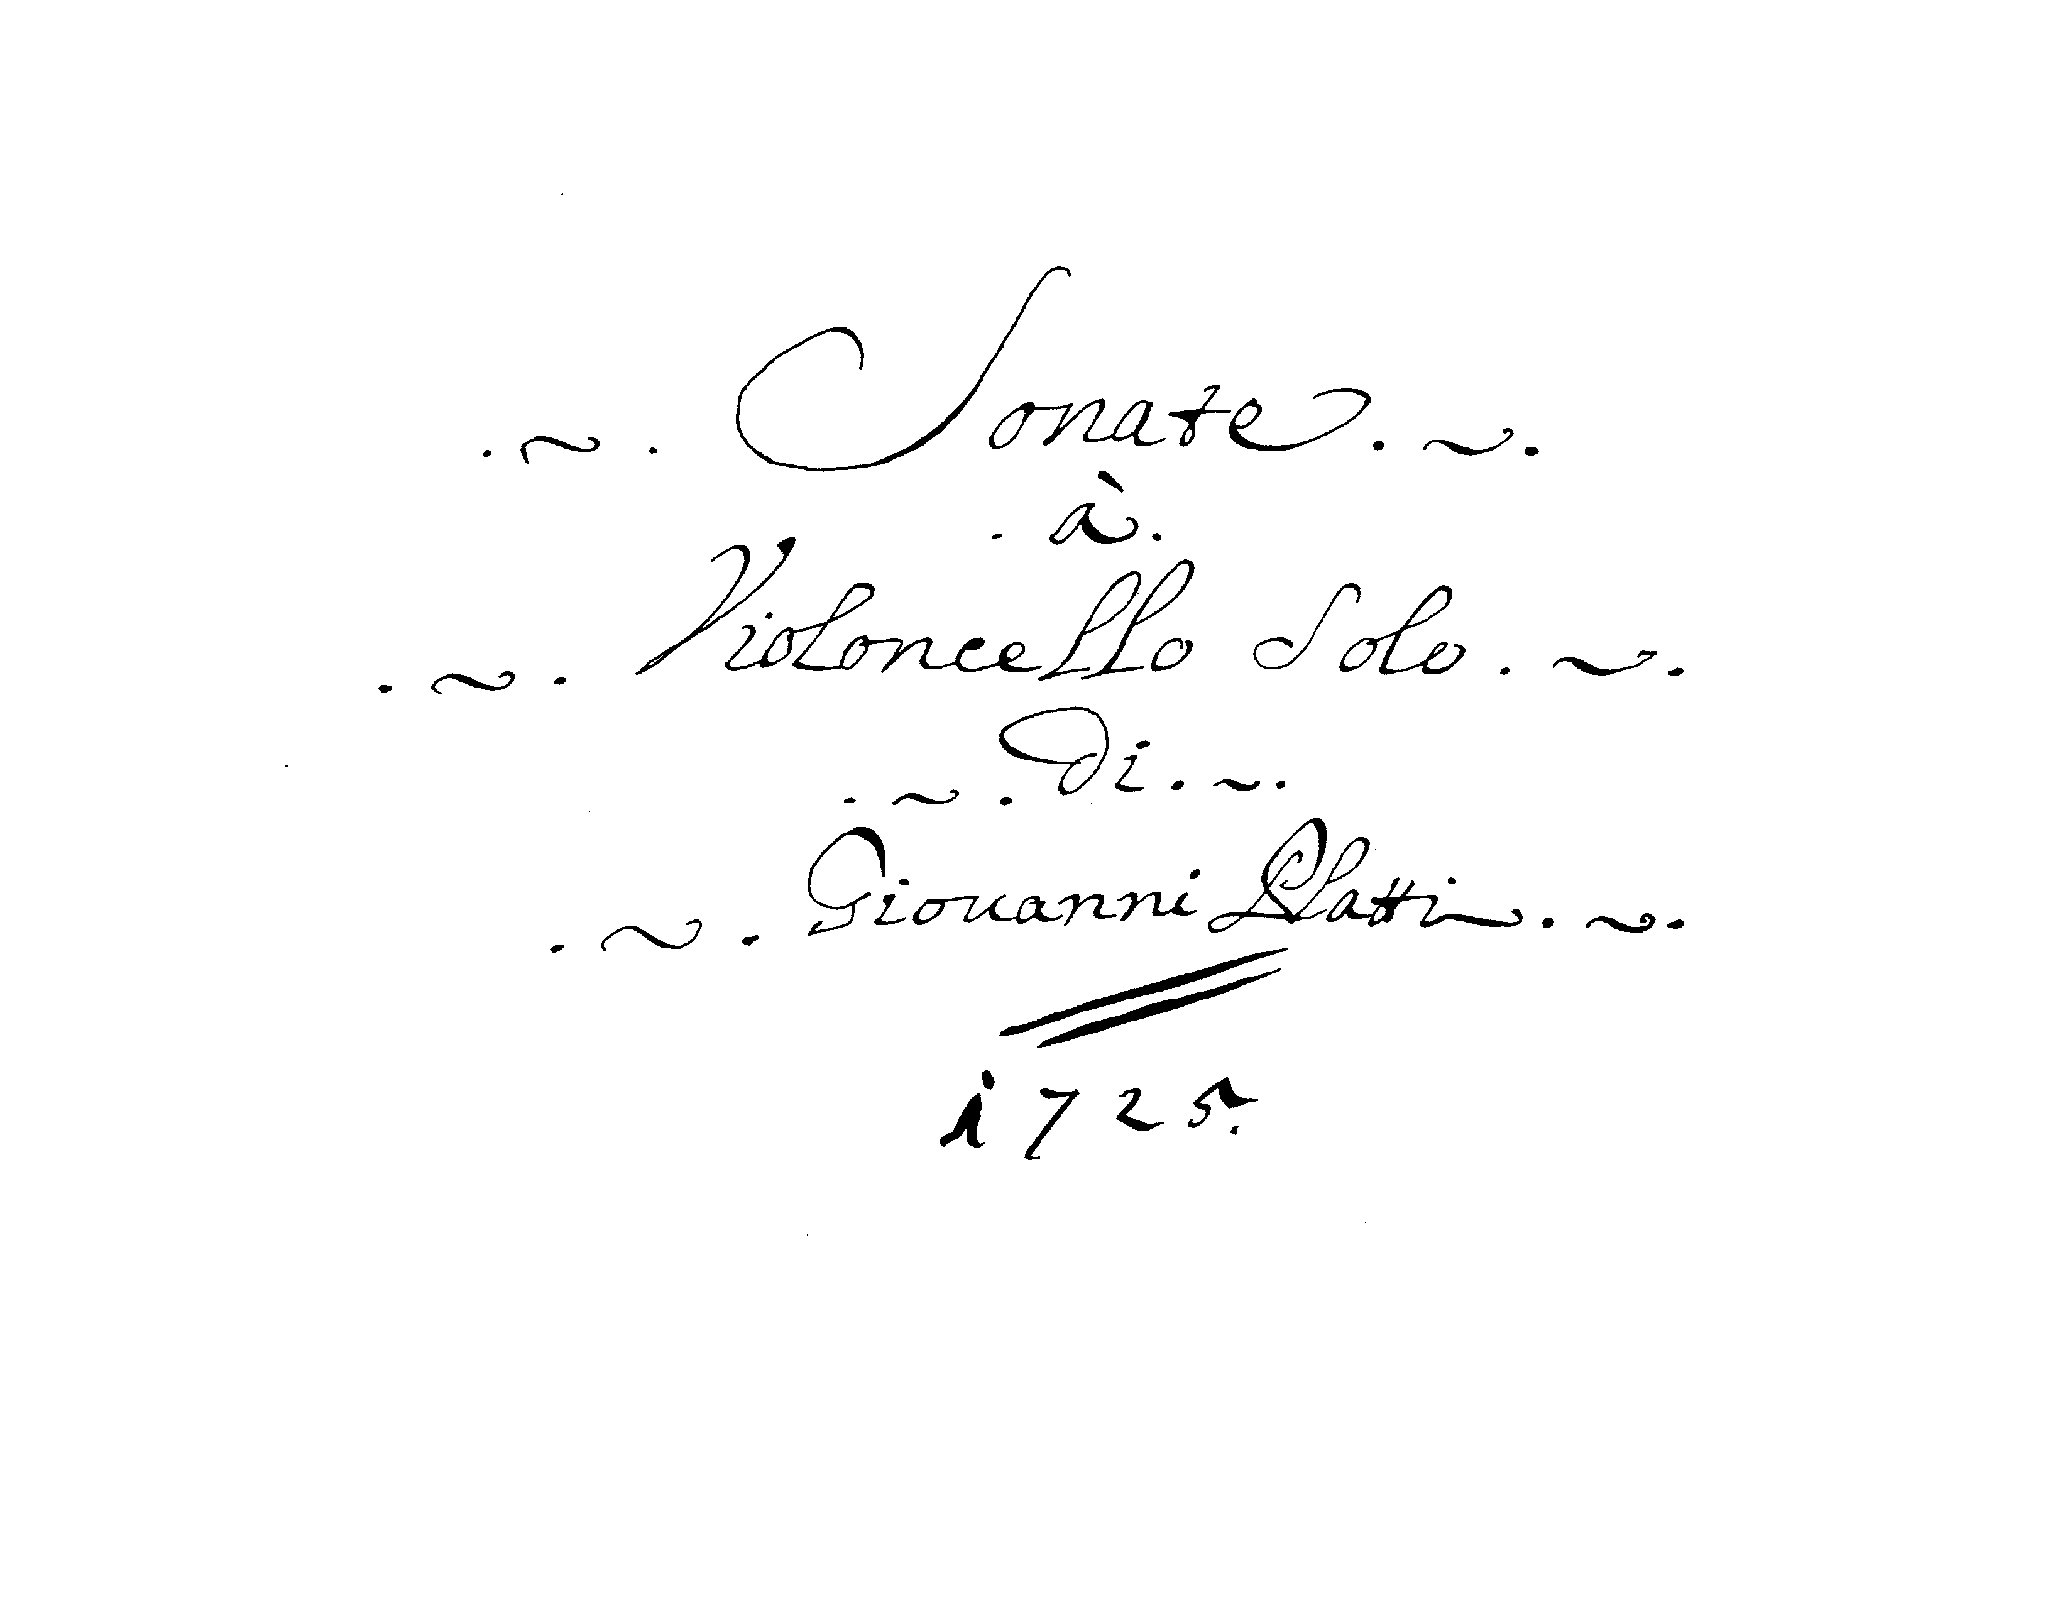 . ~ . Sonate . ~ .
. à .
. ~ . Violoncello Solo . ~ .
. ~ . di . ~ .
. ~ . Giouanni Platti . ~ .
1725.